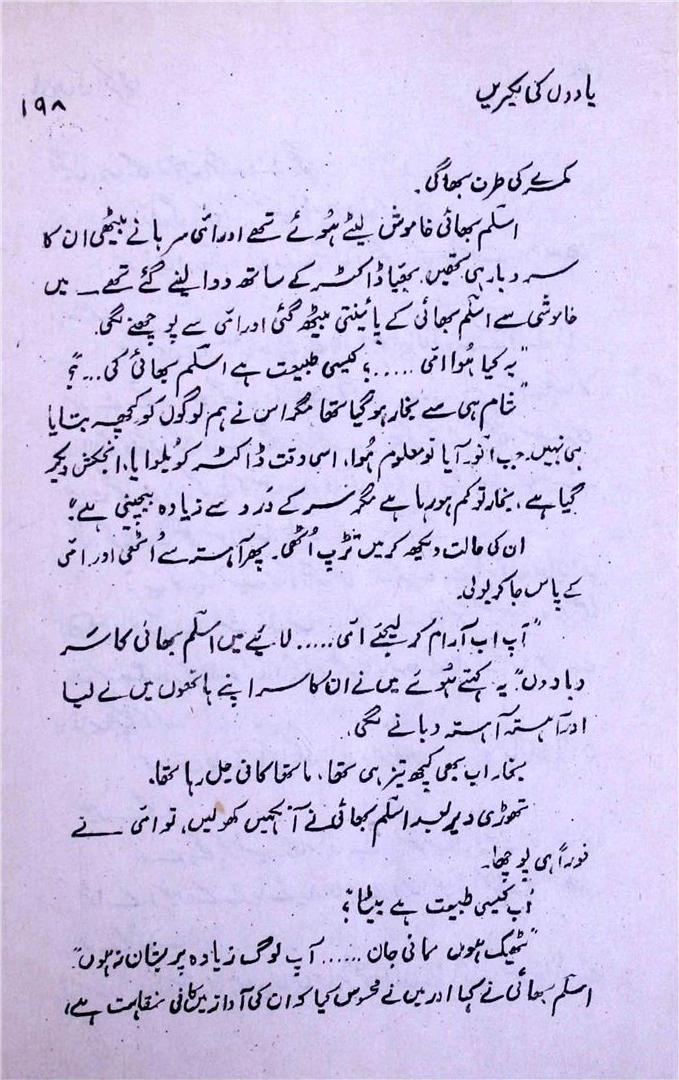 یادوں کی لکیریں
۱۹۸
کمرے کی طرف بھاگی۔
اسلم بھائی خاموش لیٹے ہُوئے تھے اور امّی سرہانے بیٹھی ان کا
سر دبا رہی تھیں۔ بھیّا ڈاکٹر کے ساتھ دوا لینے گئے تھے ــ میں
خاموشی سے اسلم بھائی کے پائینتی بیٹھ گئی اور امّی سے پوچھنے لگی۔
"یہ کیا ہُوا امّی .....؟ کیسی طبیعت ہے اسلم بھائی کی...؟"
"شام ہی سے بخار ہو گیا تھا مگر اس نے ہم لوگوں کو کچھ بتایا
ہی نہیں۔ جب انور آیا تو معلوم ہُوا، اسی وقت ڈاکٹر کو بُلوایا، انجکشن دیکر
گیا ہے، بخار تو کم ہو رہا ہے مگر سر کے دَرد سے زیادہ بیچینی ہے"
ان کی حالت دیکھ کر میں تڑپ اُٹھی۔ پھر آہستہ سے اُٹھی اور امّی
کے پاس جا کر بولی۔
"آپ اب آرام کر لیجئے امّی..... لائیے میں اسلم بھائی کا سَر
دبا دوں" یہ کہتے ہُوئے میں نے ان کا سر اپنے ہاتھوں میں لے لیا
اور آہستہ آہستہ دبانے لگی۔
بخار اب بھی کچھ تیز ہی تھا، ماتھا کافی جل رہا تھا۔
تھوڑی دیر بعد اسلم بھائی نے آنکھیں کھولیں، تو امّی نے
فوراً ہی پوچھا۔
"اب کیسی طبیعت ہے بیٹا؟"
"ٹھیک ہوں ممانی جان ...... آپ لوگ زیادہ پریشان نہ ہوں"
اسلم بھائی نے کہا اور میں نے محسوس کیا کہ ان کی آواز میں کافی نقاہت ہے،